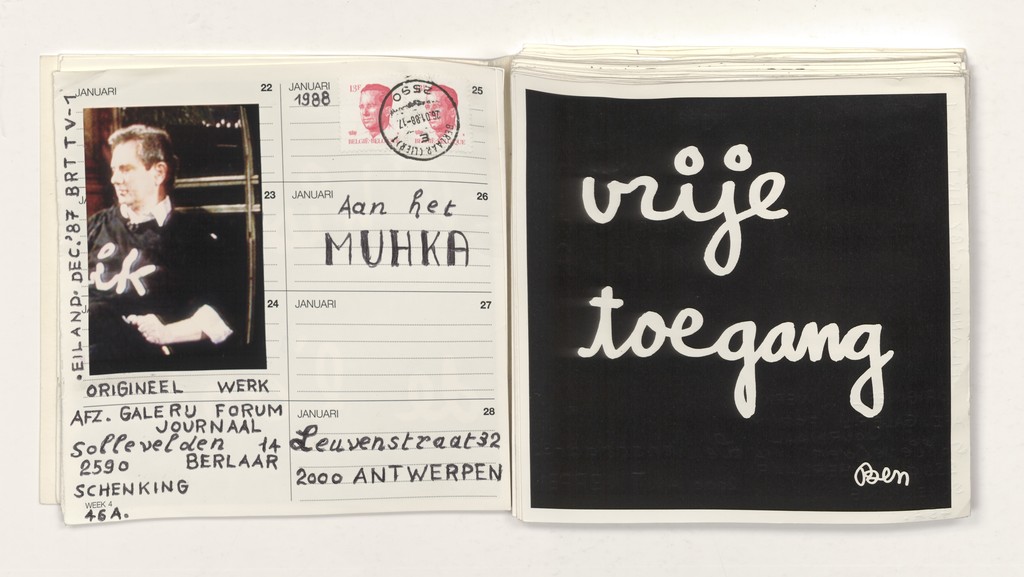 JANUARI 22
.EILAND. DEC.'87 BRT TV-1
ik
23
24
ORIGINEEL WERK
AFZ. GALERIJ FORUM
JOURNAAL
Sollevelden 14
2590 BERLAAR
SCHENKING
WEEK 4
46A.
JANUARI 25
1988
2590
26.01.88-17
E
JANUARI 26
Aan het
MUHKA
JANUARI 27
JANUARI 28
Leuvenstraat 32
2000 ANTWERPEN
vrije
toegang
Ben